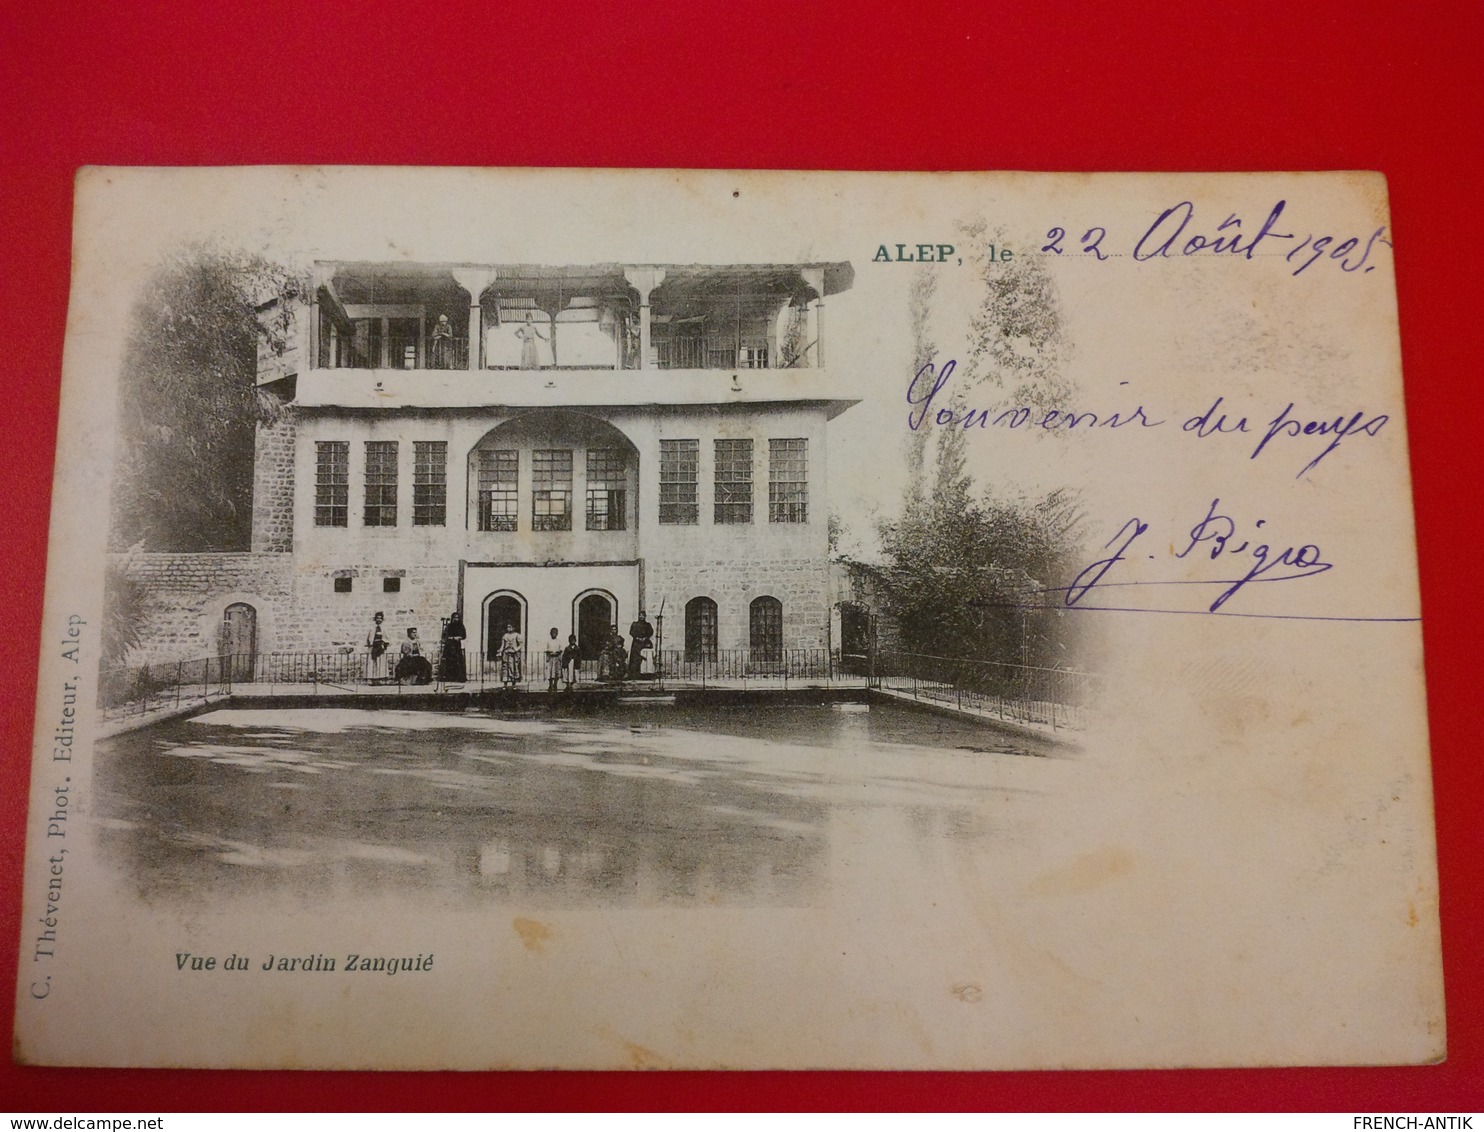 ALEP, le 22 Août 1905.
Souvenir du pays
J. Bigro
C. Thévenet, Phot. Editeur, Alep
Vue du Jardin Zanguié
www.delcampe.net
FRENCH-ANTIK